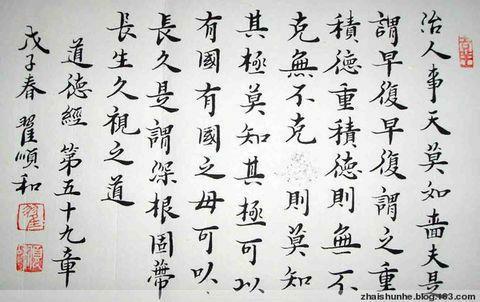 治人事天莫如嗇夫是
謂早復早復謂之重
積德重積德則無不
克無不克則莫知
其極莫知其極可以
有國有國之母可以
長久是謂深根固蒂
長生久視之道
道德經 第五十九章
戊子春 翟順和
zhaishunhe.blog.163.com